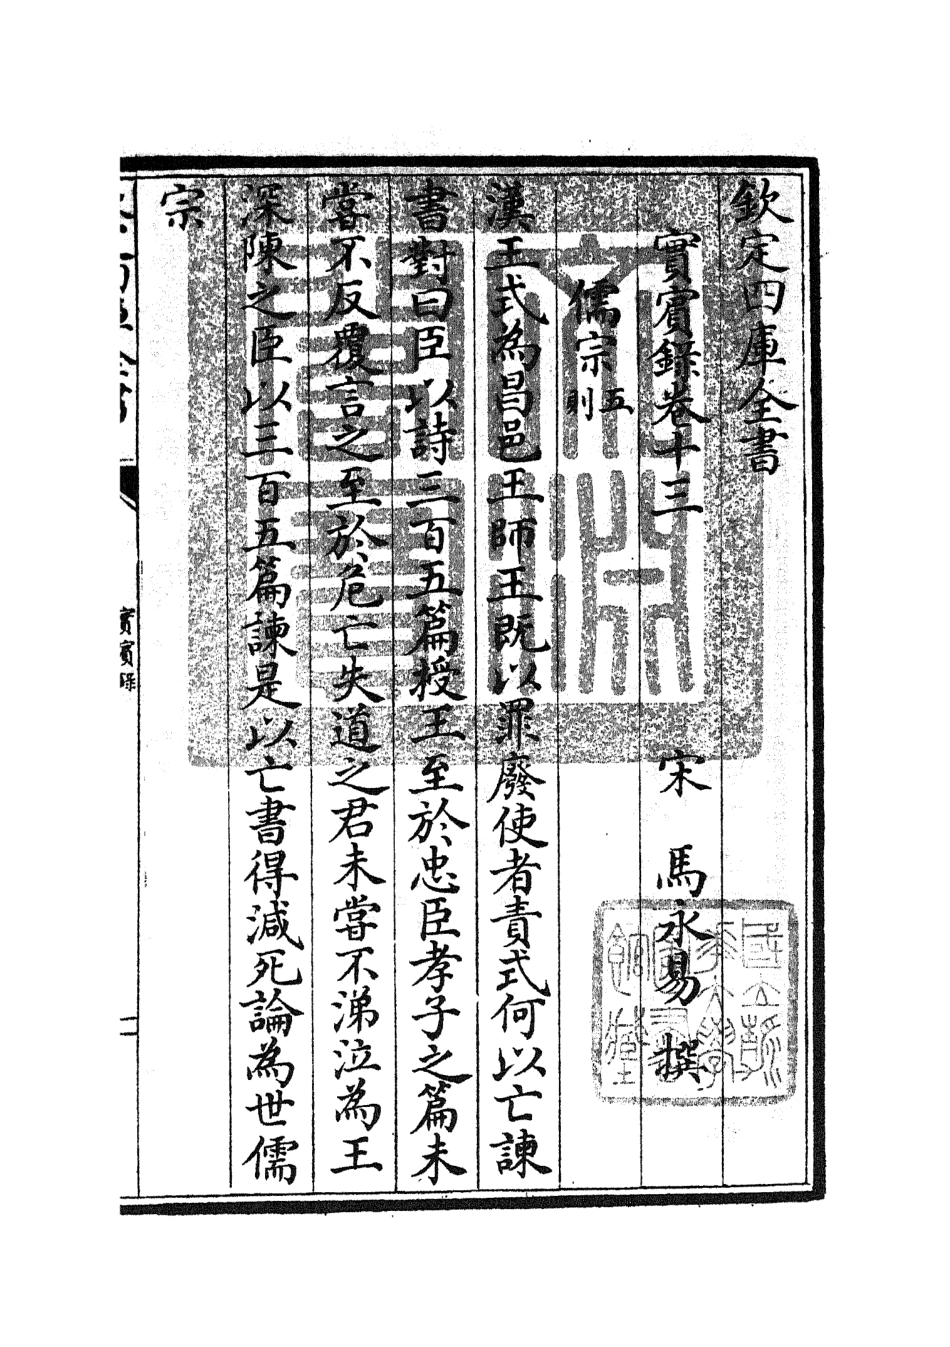 欽定四庫全書
實賓錄卷十三　宋　馬永易　撰
儒宗五則
漢王式為昌邑王師王既以罪廢使者責式何以亡諫
書對曰臣以詩三百五篇授王至於忠臣孝子之篇未
嘗不反覆言之至於危亡失道之君未嘗不涕泣為王
深陳之臣以三百五篇諫是以亡書得減死論為世儒
宗
實賓錄